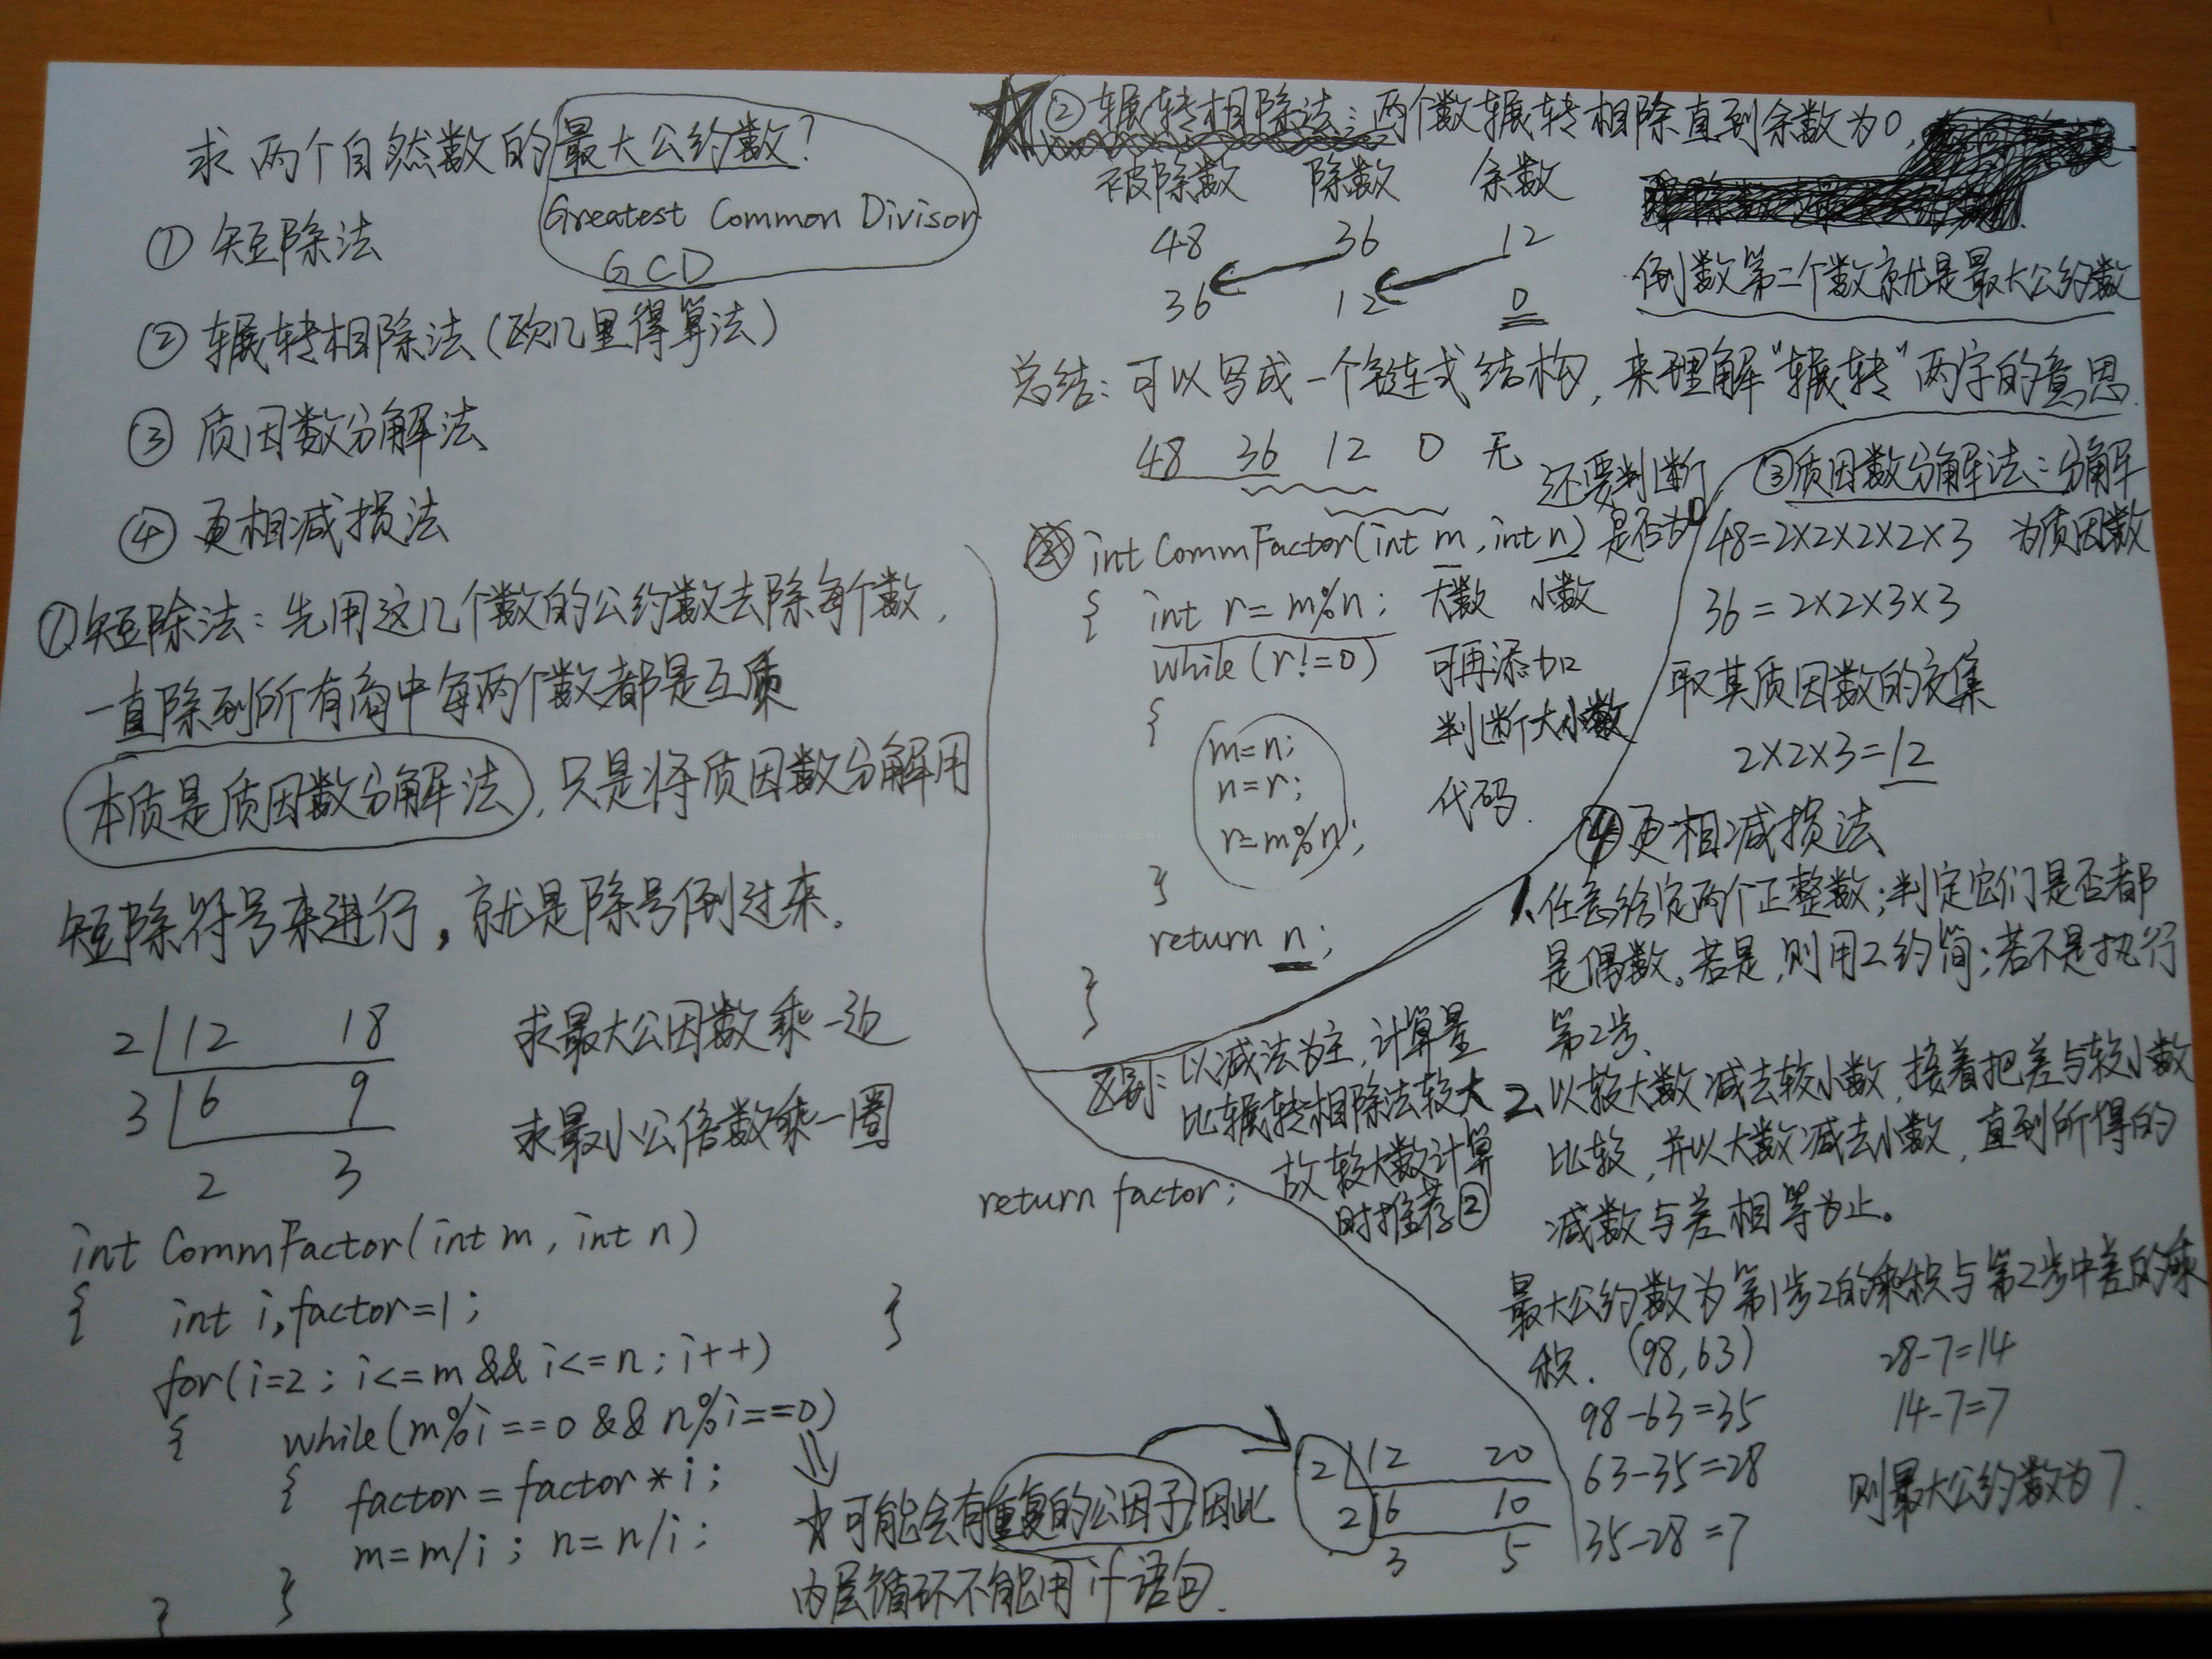 求两个自然数的最大公约数?
Greatest Common Divisor
GCD
① 短除法
② 辗转相除法(欧几里得算法)
③ 质因数分解法
④ 更相减损法
①短除法:先用这几个数的公约数去除每个数,
一直除到所有商中每两个数都是互质
本质是质因数分解法,只是将质因数分解用
短除符号来进行,就是除号倒过来.
2 12 18
3 6 9
2 3
求最大公因数乘一边
求最小公倍数乘一圈
int CommFactor(int m, int n)
{ int i,factor=1;
for(i=2; i<=m && i<=n; i++)
{ while(m%i==0 && n%i==0)
{ factor = factor*i;
m=m/i; n=n/i;
}
}
return factor;
}
☆可能会有重复的公因子因此
内层循环不能用if语句.
2 12 20
2 6 10
3 5
②辗转相除法:两个数辗转相除直到余数为0,
倒数第二个数就是最大公约数
被除数 除数 余数
48 36 12
36 12 0
总结:可以写成一个链式结构,来理解"辗转"两字的意思.
48 36 12 0 无
int CommFactor(int m, int n)
还要判断
是否为0
大数 小数
{ int r= m%n;
while(r!=0)
{
m=n;
n=r;
r=m%n;
}
return n;
}
可再添加
判断大小数
代码.
③质因数分解法:分解
为质因数
48=2×2×2×2×3
36=2×2×3×3
取其质因数的交集
2×2×3=12
④更相减损法
1、任意给定两个正整数;判定它们是否都
是偶数。若是,则用2约简;若不是执行
第2步、
2、以较大数减去较小数,接着把差与较小数
比较,并以大数减去小数,直到所得的
减数与差相等为止。
最大公约数为第1步2的乘积与第2步中差的乘
积.
(98,63)
98-63=35
63-35=28
35-28=7
28-7=14
14-7=7
则最大公约数为7.
区别:以减法为主,计算量
比辗转相除法较大
故较大数计算
时推荐②